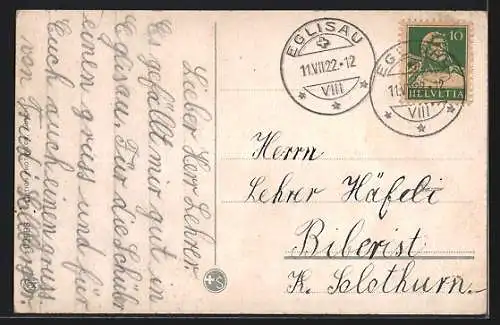 Lieber Herr Lehrer
Es gefällt mir gut in
Eglisau. Für die Schüler
einen gruss und für
Euch auch einen gruss
von
EGLISAU
11.VII.22.-12
VIII
EGLI
11.V 22.-12
VIII
10
HELVETIA
Herrn
Lehrer Häfeli
Biberist
K. Solothurn.